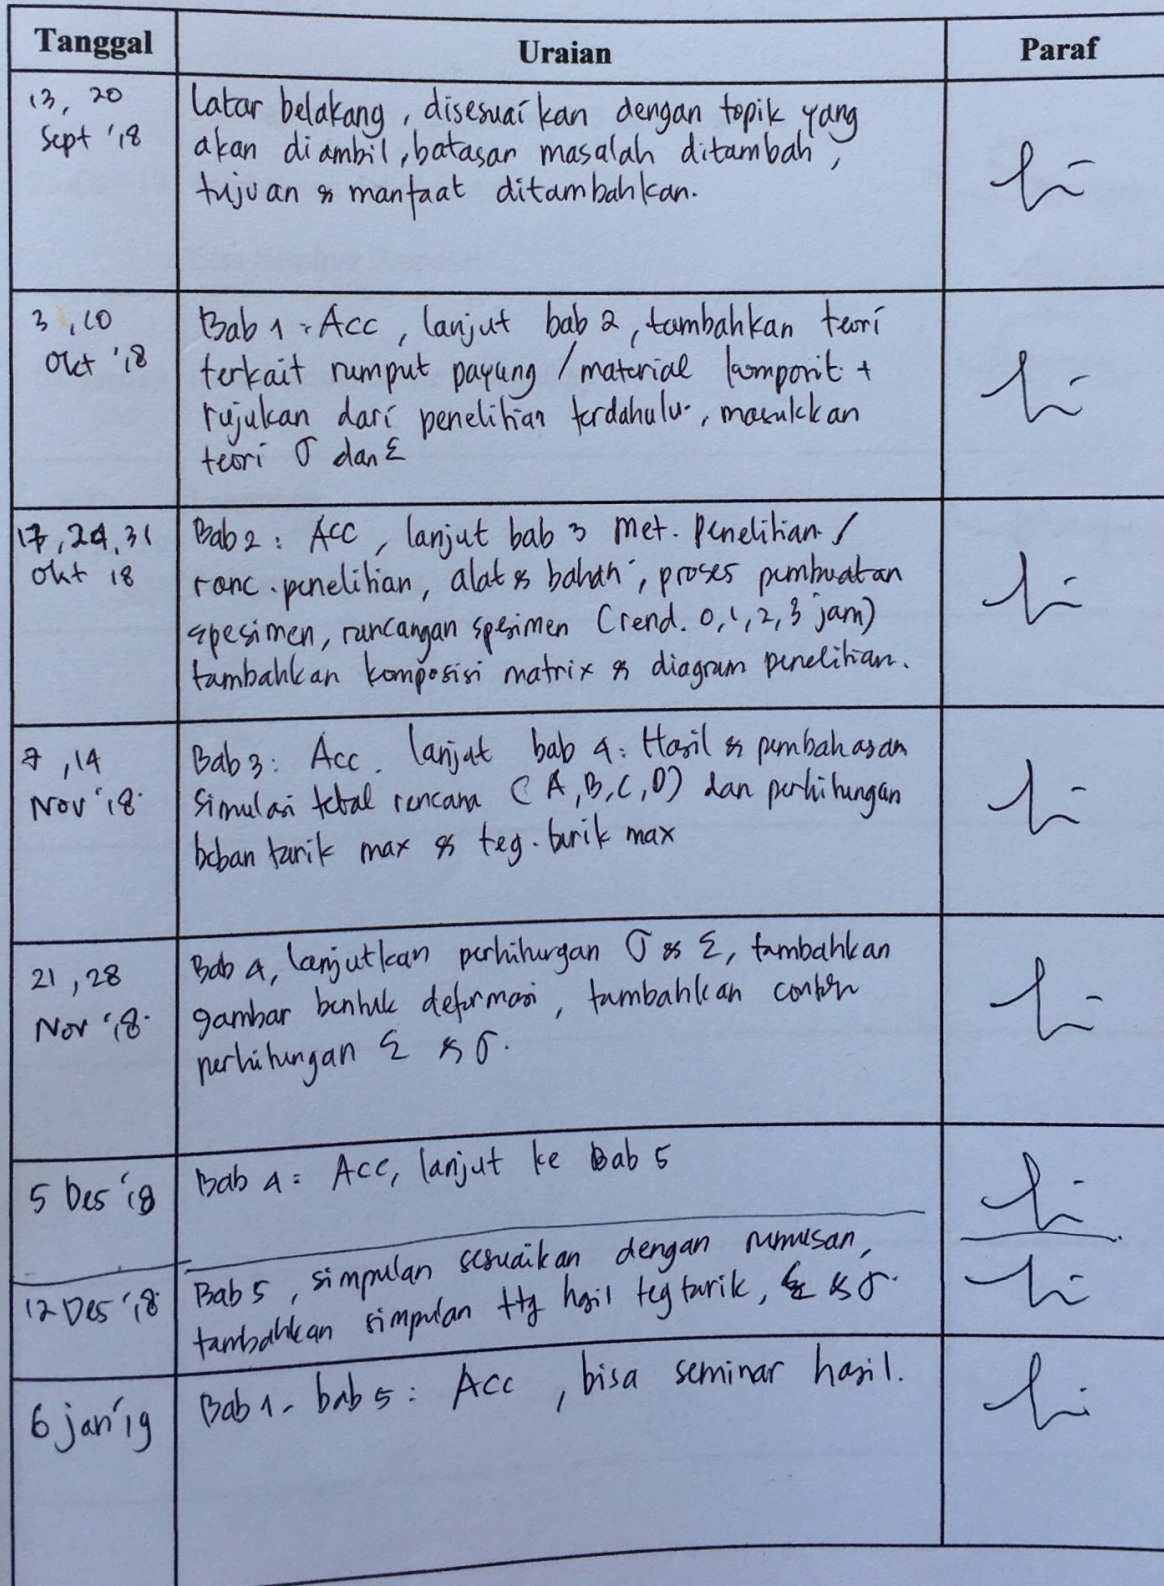 Tanggal
Uraian
Paraf
13, 20
Sept '18
latar belakang, disesuaikan dengan topik yang
akan diambil, batasan masalah ditambah,
tujuan & manfaat ditambahkan.
3, 10
Okt '18
Bab 1 : Acc, lanjut bab 2, tambahkan teori
terkait rumput payung / material komposit +
rujukan dari penelitian terdahulu, masukkan
teori σ dan Σ
17, 24, 31
Okt 18
Bab 2 : Acc, lanjut bab 3 Met. Penelitian /
ranc. penelitian, alat & bahan, proses pembuatan
spesimen, rancangan spesimen (rend. 0, 1, 2, 3 jam)
tambahkan komposisi matrix & diagram penelitian.
7, 14
Nov '18.
Bab 3 : Acc. lanjut bab 4 : Hasil & pembahasan
simulasi tebal rencana (A, B, C, D) dan perhitungan
beban tarik max & teg. tarik max
21, 28
Nov '18.
Bab 4, lanjutkan perhitungan σ & Σ, tambahkan
gambar bentuk deformasi, tambahkan contoh
perhitungan Σ & σ.
5 Des '18
Bab 4 : Acc, lanjut ke Bab 5
12 Des '18
Bab 5, simpulan sesuaikan dengan rumusan,
tambahkan simpulan ttg hasil teg tarik, Σ & σ.
6 jan '19
Bab 1 - bab 5 : Acc, bisa seminar hasil.